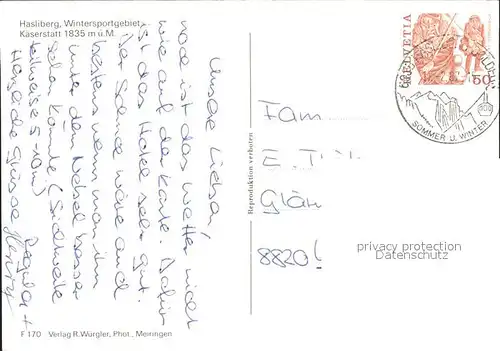 Hasliberg, Wintersportgebiet
Käserstatt 1835 m ü.M.
Unsere Lieben!
noch ist das Wetter nicht
wie auf der Karte. Dafür
ist das Hotel sehr gut.
Der Schnee wäre auch
bestens wenn man ihn
unter dem Nebel besser
sehen könnte (Sichtweite
teilweise 5-10m)
Herzliche Grüsse
Regula +
Henry
F 170 Verlag R. Würgler, Phot., Meiringen
Reproduktion verboten
HELVETIA
50
SOMMER U. WINTER
Fam
E.
8820!
privacy protection
Datenschutz